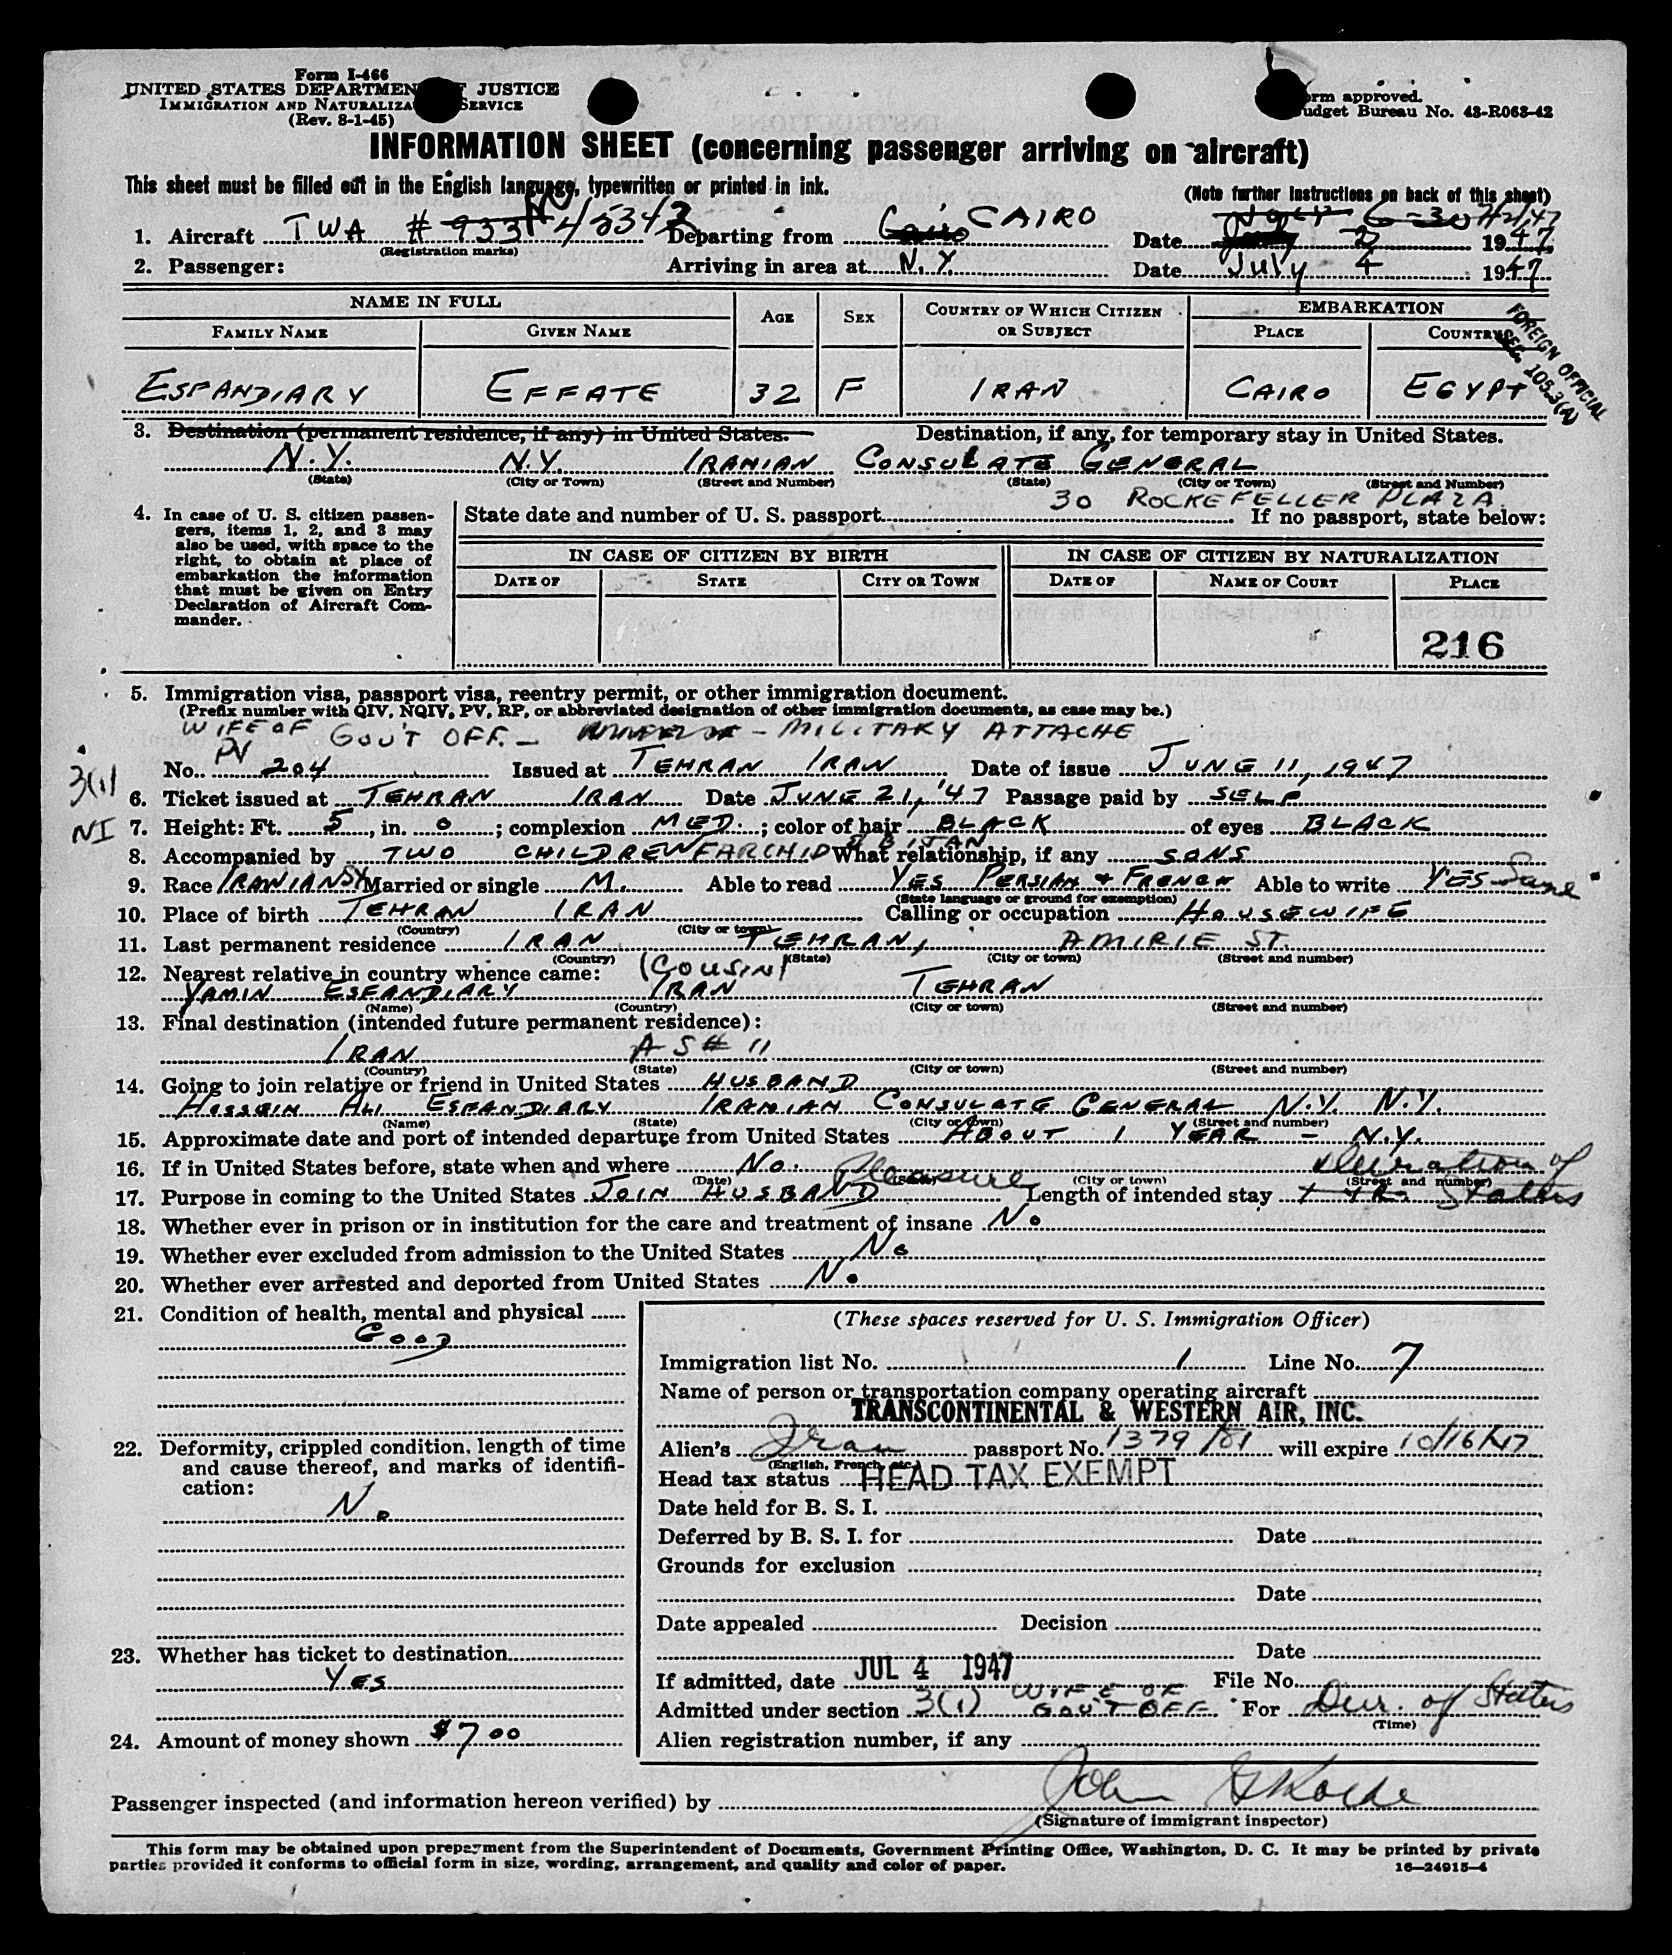 Form I-466
UNITED STATES DEPARTMENT OF JUSTICE
IMMIGRATION AND NATURALIZATION SERVICE
(Rev. 8-1-45)
Form approved.
Budget Bureau No. 43-R063-42
INFORMATION SHEET (concerning passenger arriving on aircraft)
This sheet must be filled out in the English language, typewritten or printed in ink.
(Note further instructions on back of this sheet)
1. Aircraft TWA # 933 45343 Departing from Cairo CAIRO Date 2 1947
(Registration marks)
2. Passenger: Arriving in area at N.Y. Date July 4 1947
NAME IN FULL AGE SEX COUNTRY OF WHICH CITIZEN OR SUBJECT EMBARKATION
FAMILY NAME GIVEN NAME PLACE COUNTRY
FOREIGN OFFICIAL
SEC. 105.3(A)
ESFANDIARY EFFATE 32 F IRAN CAIRO EGYPT
3. Destination (permanent residence, if any) in United States. Destination, if any, for temporary stay in United States.
N.Y. N.Y. IRANIAN CONSULATE GENERAL
(State) (City or Town) (Street and Number) (State) (City or Town) (Street and Number)
30 ROCKEFELLER PLAZA.
4. In case of U. S. citizen passengers, items 1, 2, and 3 may also be used, with space to the right, to obtain at place of embarkation the information that must be given on Entry Declaration of Aircraft Commander.
State date and number of U. S. passport If no passport, state below:
IN CASE OF CITIZEN BY BIRTH IN CASE OF CITIZEN BY NATURALIZATION
DATE OF STATE CITY OR TOWN DATE OF NAME OF COURT PLACE
216
5. Immigration visa, passport visa, reentry permit, or other immigration document.
(Prefix number with QIV, NQIV, PV, RP, or abbreviated designation of other immigration documents, as case may be.)
WIFE OF GOV'T OFF. - MILITARY ATTACHE
No. PV 204 Issued at TEHRAN IRAN Date of issue JUNE 11, 1947
3(1)
6. Ticket issued at TEHRAN IRAN Date JUNE 21, '47 Passage paid by SELF
NI
7. Height: Ft. 5, in. 0; complexion MED.; color of hair BLACK of eyes BLACK
8. Accompanied by TWO CHILDREN FARCHID & BIJAN What relationship, if any SONS
9. Race IRANIAN Married or single M. Able to read YES PERSIAN & FRENCH Able to write YES Same
(State language or ground for exemption)
10. Place of birth TEHRAN IRAN Calling or occupation HOUSEWIFE
(Country) (City or town)
11. Last permanent residence IRAN TEHRAN, AMIRIE ST.
(Country) (State) (City or town) (Street and number)
12. Nearest relative in country whence came: (COUSIN)
YAMIN ESFANDIARY IRAN TEHRAN
(Name) (Country) (City or town) (Street and number)
13. Final destination (intended future permanent residence):
IRAN AS # 11
(Country) (State) (City or town) (Street and number)
14. Going to join relative or friend in United States HUSBAND
HOSSEIN ALI ESFANDIARY IRANIAN CONSULATE GENERAL N.Y. N.Y.
(Name) (State) (City or town) (Street and number)
15. Approximate date and port of intended departure from United States ABOUT 1 YEAR - N.Y.
16. If in United States before, state when and where No.
(Date) (State) (City or town) (Street and number)
17. Purpose in coming to the United States JOIN HUSBAND Pleasure Length of intended stay 1 YR. duration of status
18. Whether ever in prison or in institution for the care and treatment of insane No
19. Whether ever excluded from admission to the United States No
20. Whether ever arrested and deported from United States No
21. Condition of health, mental and physical
GOOD
22. Deformity, crippled condition, length of time and cause thereof, and marks of identification:
No
23. Whether has ticket to destination
YES
24. Amount of money shown $700
(These spaces reserved for U. S. Immigration Officer)
Immigration list No. 1 Line No. 7
Name of person or transportation company operating aircraft
TRANSCONTINENTAL & WESTERN AIR, INC.
Alien's Iran passport No. 1379/81 will expire 10/16/47
(English, French, etc.)
Head tax status HEAD TAX EXEMPT
Date held for B. S. I.
Deferred by B. S. I. for Date
Grounds for exclusion
Date
Date appealed Decision
Date
If admitted, date JUL 4 1947 File No.
Admitted under section 3(1) WIFE OF GOV'T OFF. For Dur. of Status
(Time)
Alien registration number, if any
Passenger inspected (and information hereon verified) by John
(Signature of immigrant inspector)
This form may be obtained upon prepayment from the Superintendent of Documents, Government Printing Office, Washington, D. C. It may be printed by private
parties provided it conforms to official form in size, wording, arrangement, and quality and color of paper.
16—24915-4